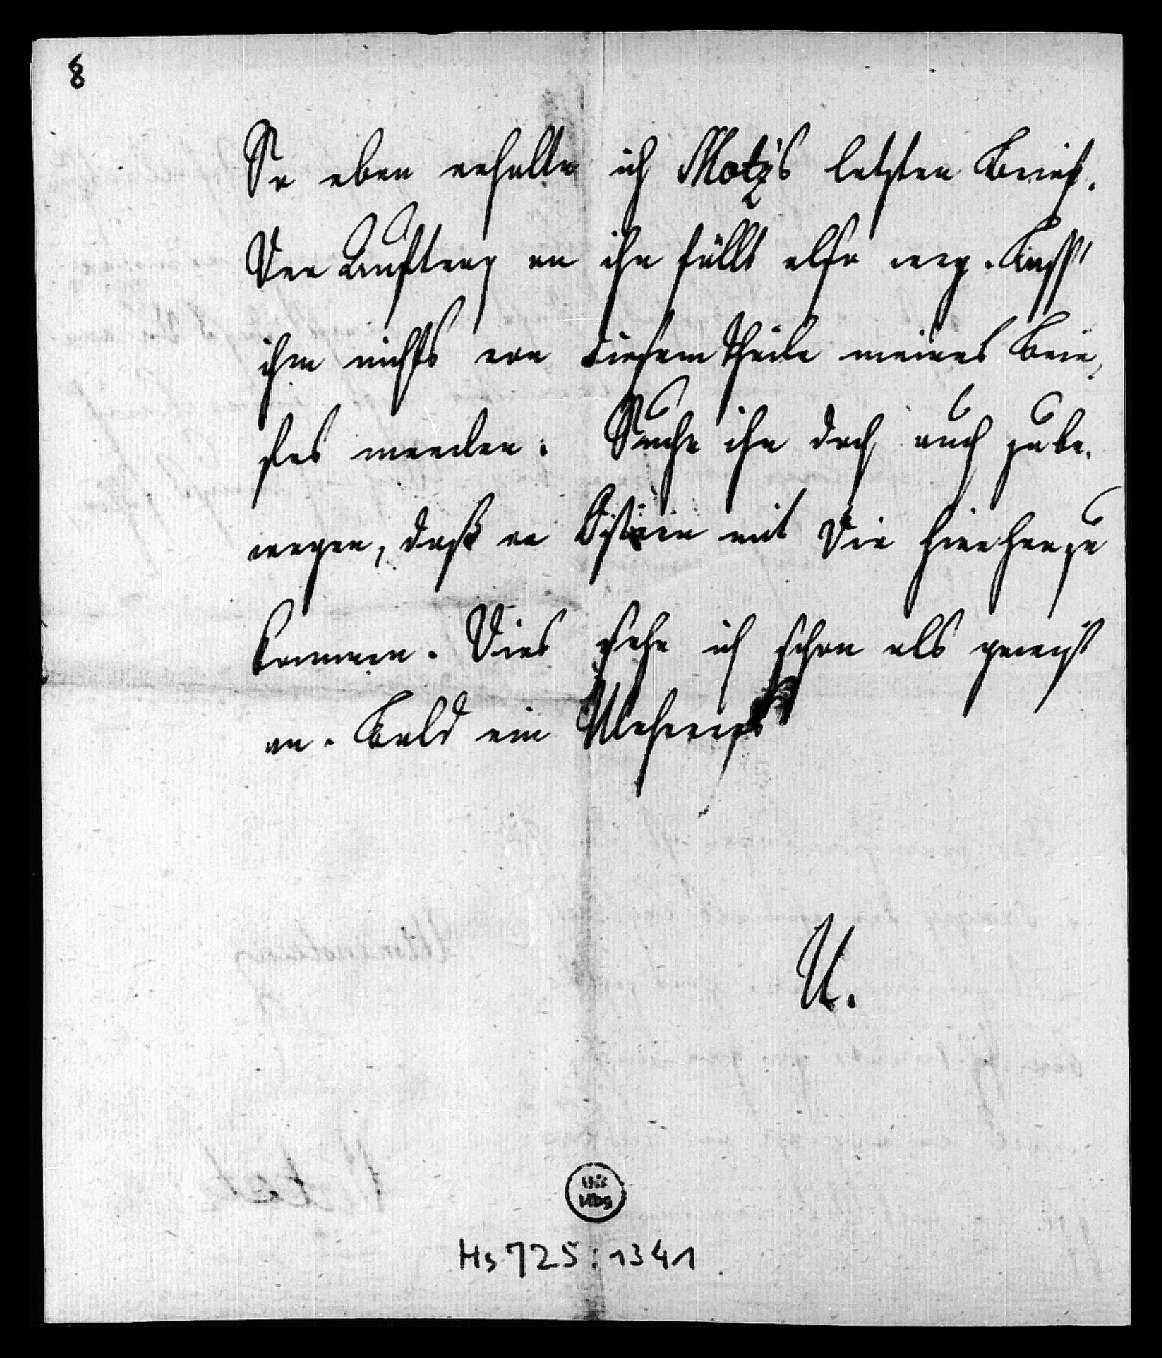 8
So eben erhalte ich Motz's letzten Brief.
Der Auftrag an ihn fällt also weg. Laß
ihm nichts von diesem Theile meines Brie,
fes merken. Suche ihn doch auch zu be,
wegen, daß er Ostern mit Dir hierher zu
kommen. Dies sehe ich schon als gewiß
an. Bald ein Mehreres
U.
Hs 725:1341